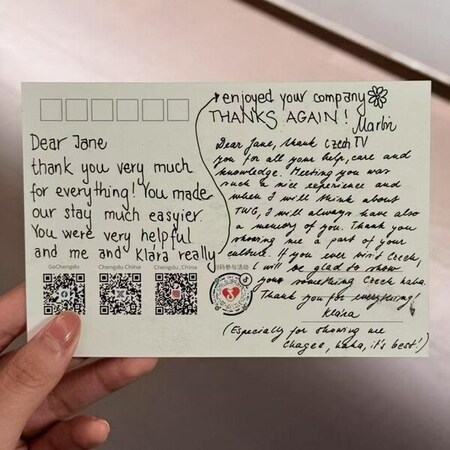 Dear Jane
thank you very much
for everything! You made
our stay much easyier.
You were very helpful
and me and Klára really
enjoyed your company
THANKS AGAIN!
Martin
Czech TV
Dear Jane, thank
you for all your help, care and
knowledge. Meeting you was
such a nice experience and
when I will think about
TWG, I will always have also
a memory of you. Thank you
showing me a part of your
culture. If you ever visit Czech,
I will be glad to show
you something Czech haha.
Thank you for everything!
Klára
(Especially for showing me
Chagee, haha, it's best!)
GoChengdu
Chengdu_China
Chengdu_China
扫码参与活动